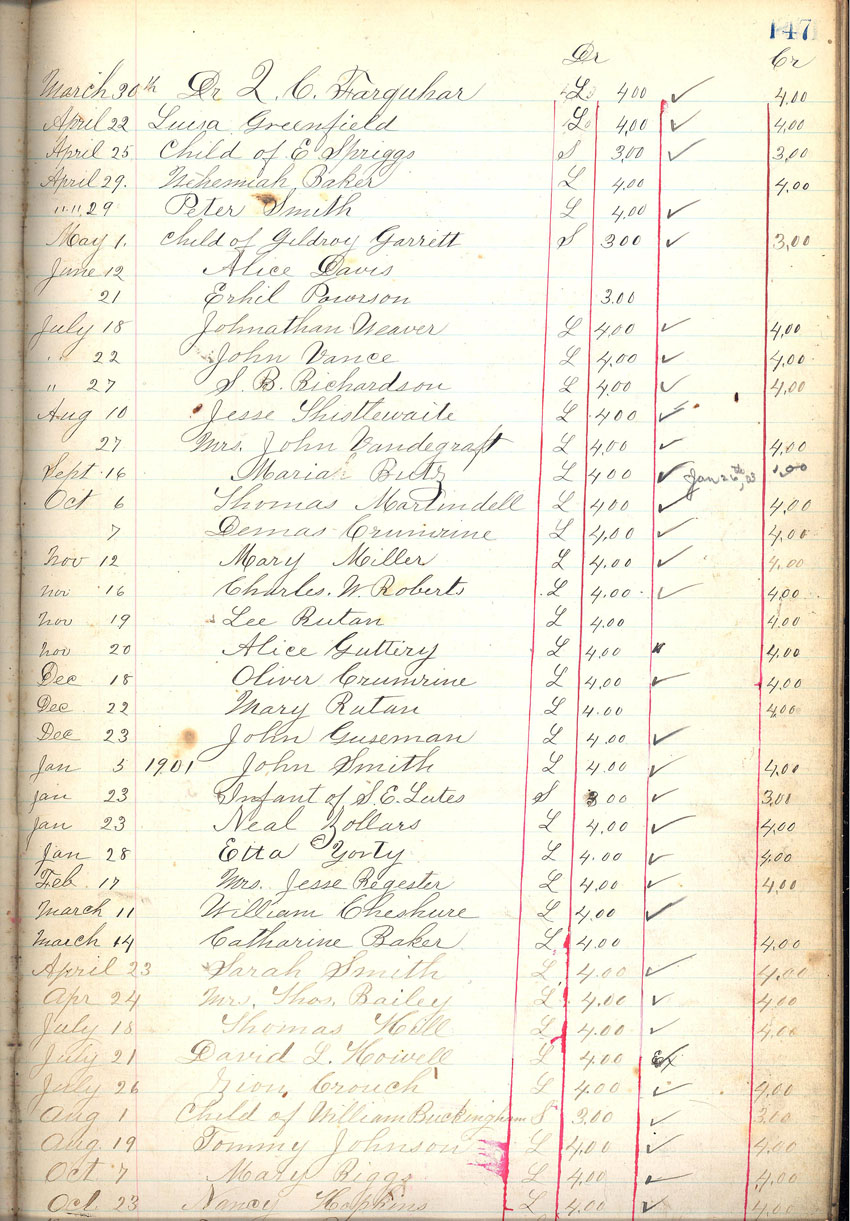 147
Dr Cr
March 30th Dr Q. C. Farquhar L 4.00 ✓ 4.00
April 22 Luisa Greenfield L 4.00 ✓ 4.00
April 25 Child of E Spriggs S 3.00 ✓ 3.00
April 29. Nehemiah Baker L 4.00 4.00
" " 29 Peter Smith L 4.00 ✓
May 1. Child of Gildroy Garrett S 3.00 ✓ 3.00
June 12 Alice Davis
21 Powrson 3.00
July 18 Johnathan Weaver L 4.00 ✓ 4.00
" 22 John Vance L 4.00 ✓ 4.00
" 27 S. B. Richardson L 4.00 ✓ 4.00
Aug 10 Jesse Thistlewaite L 4.00 ✓
27 Mrs. John Vandegraft L 4.00 ✓ 4.00
Sept 16 Maria Butz L 4.00 ✓ Jan 26th, 03 4.00
Oct 6 Thomas Martindell L 4.00 ✓ 4.00
7 Demas Crumrine L 4.00 ✓ 4.00
Nov 12 Mary Miller L 4.00 ✓ 4.00
Nov 16 Charles. W Roberts L 4.00 ✓ 4.00
Nov 19 Lee Rutan L 4.00 4.00
Nov 20 Alice Guttery L 4.00 " 4.00
Dec 18 Oliver Crumrine L 4.00 ✓ 4.00
Dec 22 Mary Rutan L 4.00 4.00
Dec 23 John Guseman L 4.00 ✓
Jan 5 1901 John Smith L 4.00 ✓ 4.00
Jan 23 Infant of S. E. Lutes S 3.00 ✓ 3.00
Jan 23 Neal Zollars L 4.00 ✓ 4.00
Jan 28 Etta Yorty L 4.00 ✓ 4.00
Feb 17 Mrs. Jesse Regester L 4.00 ✓ 4.00
March 11 William Cheshure L 4.00 ✓
March 14 Catharine Baker L 4.00 4.00
April 23 Sarah Smith L 4.00 ✓ 4.00
Apr 24 Mrs. Thos. Bailey L 4.00 ✓ 4.00
July 18 Thomas Hill L 4.00 ✓ 4.00
July 21 David L. Howell L 4.00
July 26 Zion Crouch L 4.00 ✓ 4.00
Aug 1 Child of William Buckingham S 3.00 ✓ 3.00
Aug 19 Tommy Johnson L 4.00 ✓ 4.00
Oct 7 Mary Riggs L 4.00 ✓ 4.00
Oct. 23 Nancy Hopkins L 4.00 ✓ 4.00